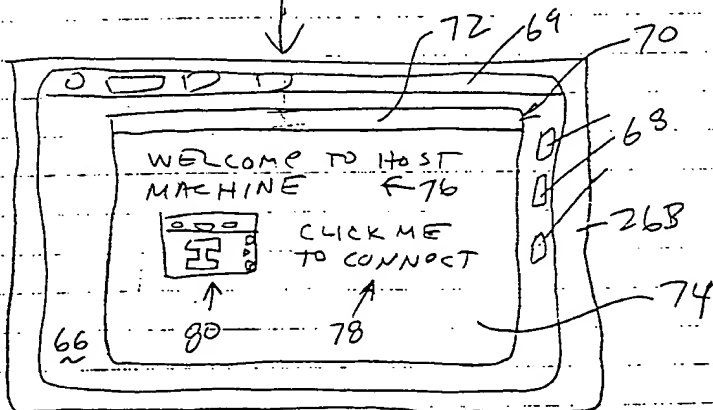 72 69
70
WELCOME TO HOST
MACHINE 76
68
26B
CLICK ME
TO CONNECT
74
66
80 78